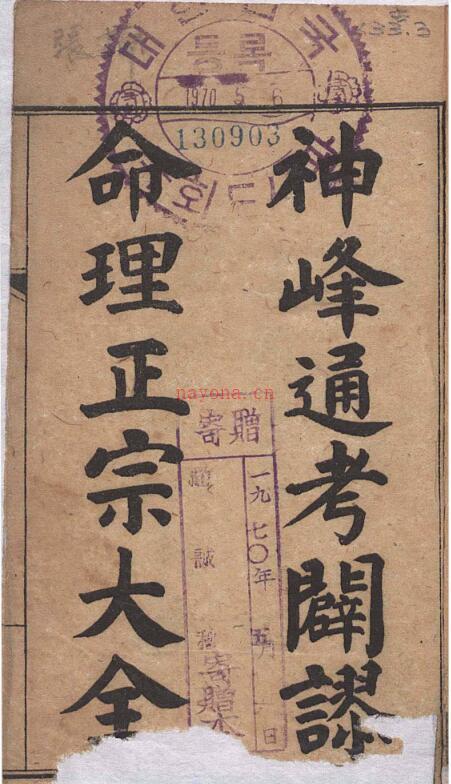 神峰通考闢謬
命理正宗大全
대한민국
등록
1970. 5. 6
130903
寄贈
一九七〇年 五月 日
寄贈本
nayona.cn